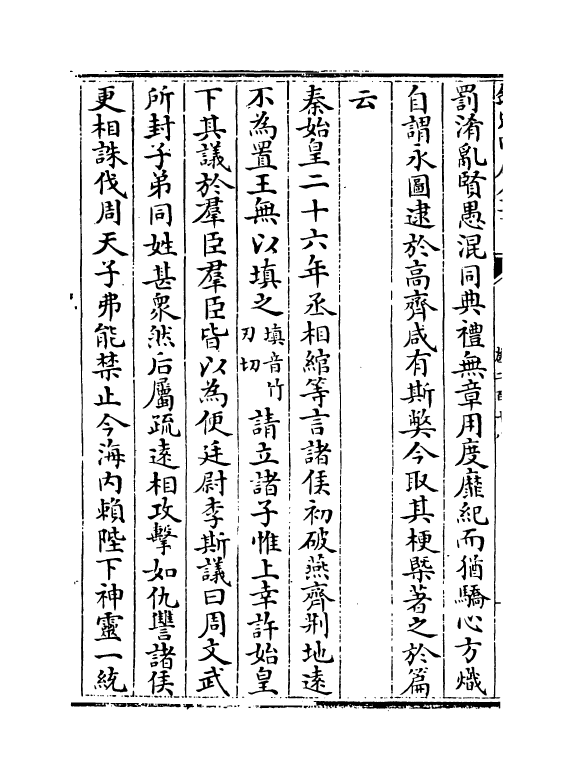 罰淆亂賢愚混同典禮無章用度靡紀而猶驕心方熾
自謂永圖逮於高齊咸有斯獘今取其梗槩著之於篇
云
秦始皇二十六年丞相綰等言諸侯初破燕齊荆地遠
不為置王無以填之填音竹刃切請立諸子惟上幸許始皇
下其議於羣臣羣臣皆以為便廷尉李斯議曰周文武
所封子弟同姓甚衆然后屬疏遠相攻擊如仇讐諸侯
更相誅伐周天子弗能禁止今海内賴陛下神靈一統